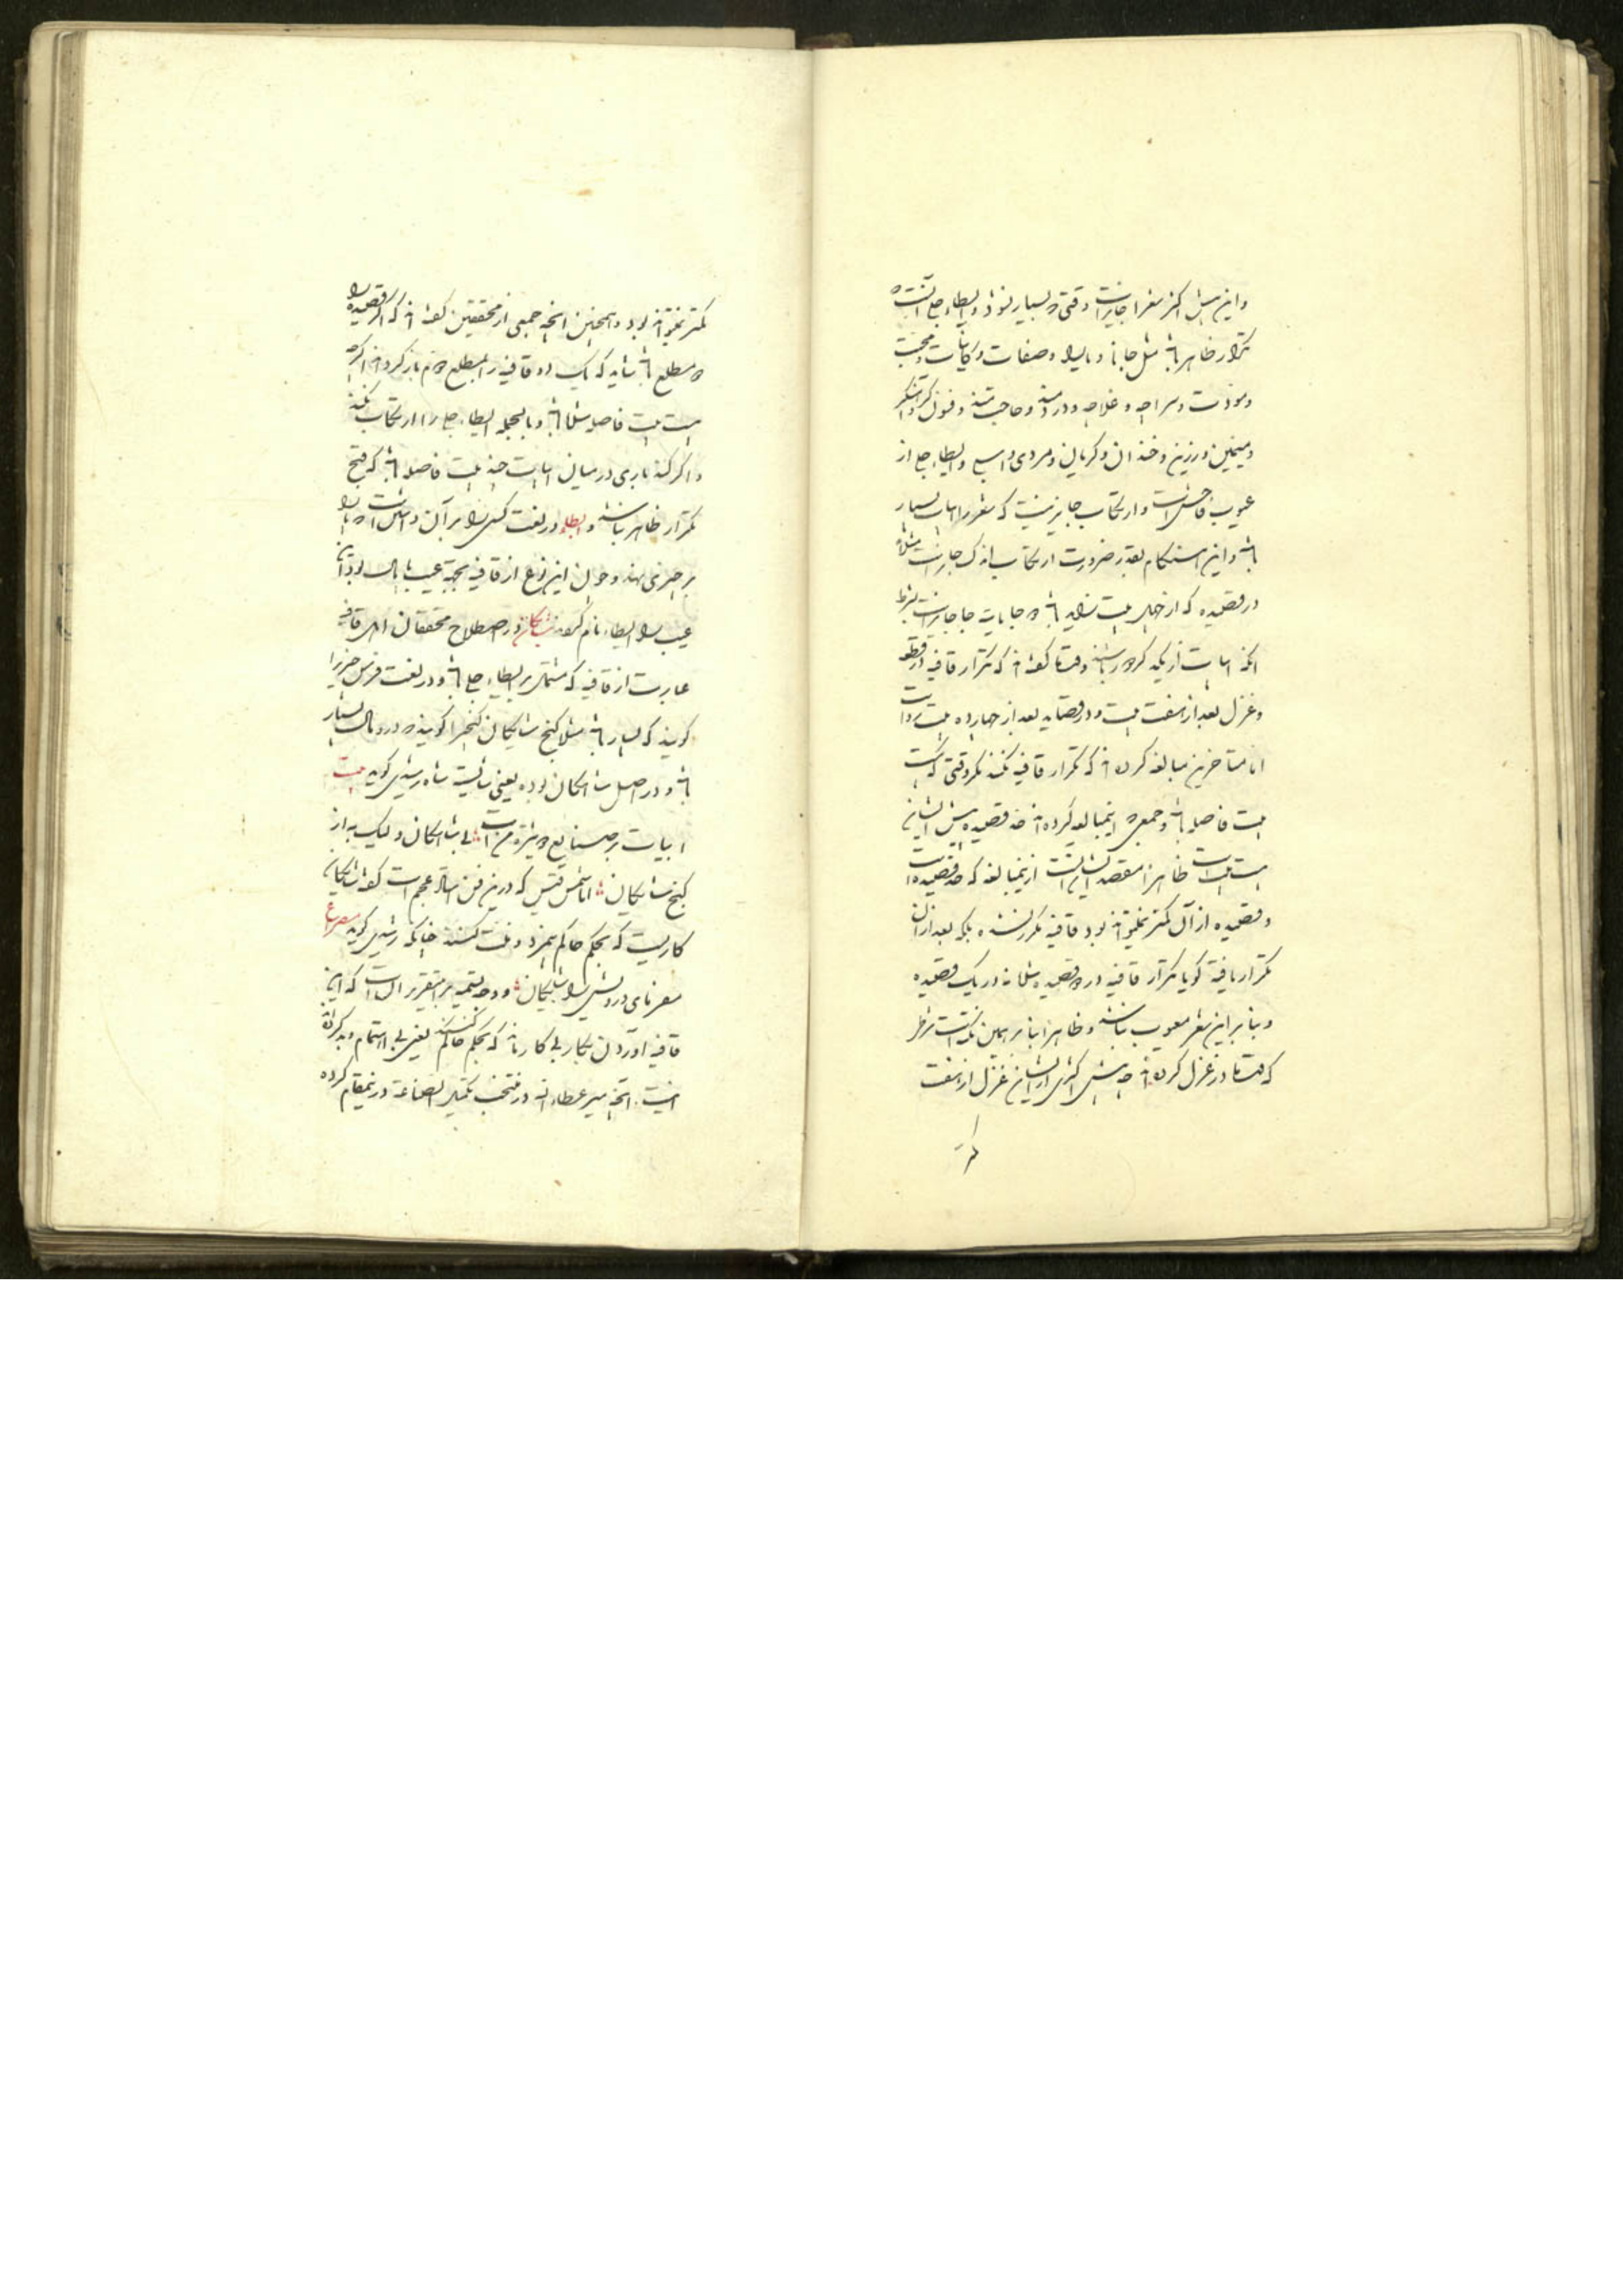 واین پیش اکثر شعرا جایز است وقتی که بسیار نبود و ایطاء جلی آنست که
تکرار ظاهر باشد مثل جانا و یارا و صفات و کاینات و محبت
و مودت و سراچه و غلامچه و دردمند و حاجتمند و فنونگر و ستمگر
و سیمین و زرین و خندان و گریان و مردی و اسبی و ایطاء جلی از
عیوب فاحش است و ارتکاب جایز نیست که شعر را ابیات بسیار
باشد و این هنگام بقدر ضرورت ارتکاب اندک جایز است مثلا
در قصیده که از چهل بیت زیاده باشد دو جا یا سه جا جایز است بشرط
آنکه ابیات از یکدیگر دور باشند و قدما گفته‌اند که تکرار قافیه در قطعه
و غزل بعد از هفت بیت و در قصاید بعد از چهارده بیت رواست
اما متأخرین مبالغه کرده‌اند که تکرار قافیه نکنند مگر وقتی که بیست
بیت فاصله باشد و جمعی که اینمبالغه کرده‌اند حد قصیده پیش ایشان
بیست بیت است ظاهرا مقصد ایشان آنست ازینمبالغه که حد قصیده است
و قصیده از آن کمتر نمیتواند بود قافیه مکرر نشده بلکه بعد از آن
تکرار یافته گویا تکرار قافیه در دو قصیده شده نه در یک قصیده
و بنابر این شعر معیوب نباشد و ظاهرا بنابر همین نکته است شرط
که قدما در غزل کرده‌اند چه پیش اکثری از ایشان غزل از هفت
کمتر
کمتر نمیتواند بود و همچنین آنچه جمعی از محققین گفته‌اند که اگر قصیده را
دو مطلع باشد شاید که یک دو قافیه را بمطلع دوم باز گرداند اگرچه
بیست بیت فاصله نباشد و بالجمله ایطاء جلی را ارتکاب نکنند
و اگر کنند باری در میان ابیات چند بیت فاصله باشد که قبح
تکرار ظاهر نباشد و ایطاء در لغت کسی را بر آن داشتن است که پا را
بر چیزی نهد و چون این نوع از قافیه بجهة عیب پایمال بود آن
عیب را ایطاء نام کردند شایگان در اصطلاح محققان اهل قافیه
عبارت از قافیه که مشتمل بر ایطاء جلی باشد و در لغت فرس چیزی را
گویند که بسیار باشد مثلا گنج شایگان گنجی را گویند که درو مال بسیار
باشد و در اصل شاهگان بوده یعنی شایسته شاه رشیدی گوید بیت
ابیات پر صنایع دوشیزه من است بی شایگان ولیک به از
گنج شایگان اما شمس قیس که درین فن استاد عجم است گفته شایگان
کاریست که بحکم حاکم بیمزد و منت کنند چنانکه رشیدی گوید مصرع
مفرمای درویش را شایگان و وجه تسمیه بر این تقریر آن است که این
قافیه آوردن بکار بی کار ماند که بحکم حاکم کنند یعنی بی اهتمام و بد کرده‌اند
اینست آنچه میر عطاء الله در منتخب تکمیل الصناعه در ینمقام کرده